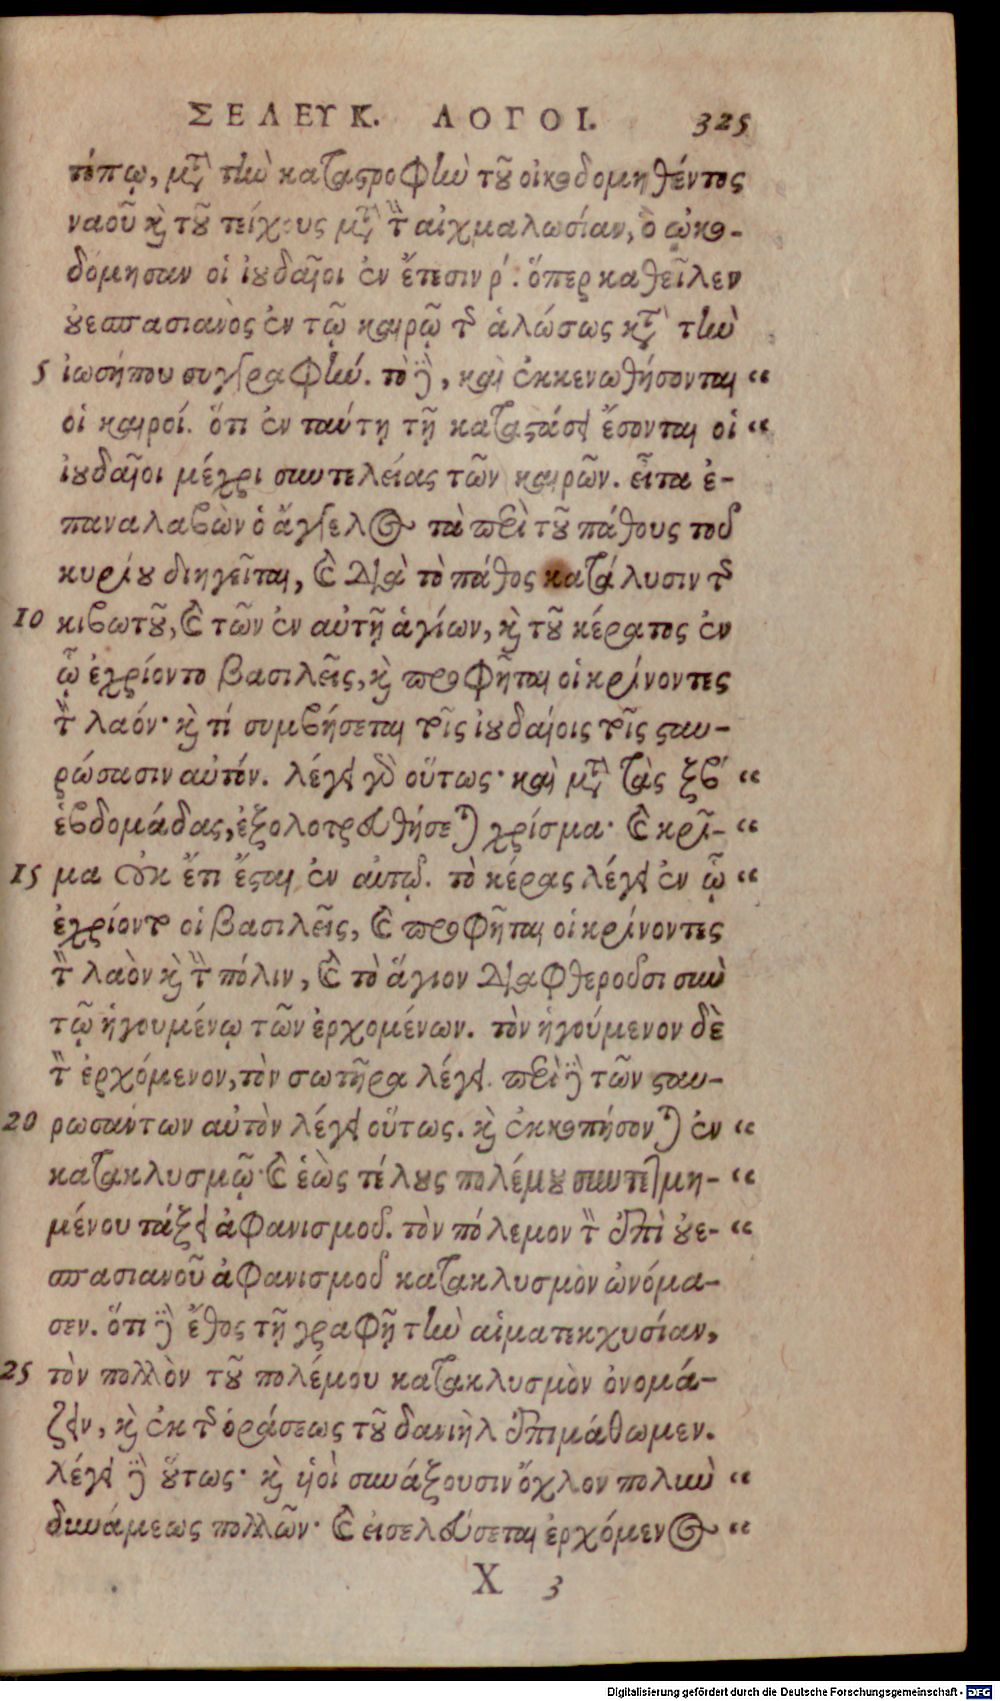 ΣΕΛΕΥΚ. ΛΟΓΟΙ. 325
τόπῳ, μετὰ τὴν καταστροφὴν τοῦ οἰκοδομηθέντος
ναοῦ καὶ τοῦ τείχους μετὰ τὴν αἰχμαλωσίαν, ὃ ᾠκο-
δόμησαν οἱ ἰουδαῖοι ἐν ἔτεσιν ρ΄. ὅπερ καθεῖλεν
οὐεσπασιανὸς ἐν τῷ καιρῷ τῆς ἁλώσεως κατὰ τὴν
5 ἰωσήπου συγγραφήν. τὸ δὲ, καὶ ἐκκενωθήσονται “
οἱ καιροί. ὅτι ἐν ταύτῃ τῇ καταστάσει ἔσονται οἱ “
ἰουδαῖοι μέχρι συντελείας τῶν καιρῶν. εἶτα ἐ-
παναλαβὼν ὁ ἄγγελος τὰ περὶ τοῦ πάθους τοῦ
κυρίου διηγεῖται, καὶ διὰ τὸ πάθος κατάλυσιν τῆς
10 κιβωτοῦ, καὶ τῶν ἐν αὐτῇ ἁγίων, καὶ τοῦ κέρατος ἐν
ᾧ ἐχρίοντο βασιλεῖς, καὶ προφῆται οἱ κρίνοντες
τὸν λαόν· καὶ τί συμβήσεται τοῖς ἰουδαίοις τοῖς σταυ-
ρώσασιν αὐτόν. λέγει γὰρ οὕτως· καὶ μετὰ τὰς ξβ΄ “
ἑβδομάδας, ἐξολοθρευθήσεται χρίσμα· καὶ κρῖ- “
15 μα οὐκ ἔτι ἔσται ἐν αὐτῷ. τὸ κέρας λέγει ἐν ᾧ “
ἐχρίοντο οἱ βασιλεῖς, καὶ προφῆται οἱ κρίνοντες
τὸν λαὸν καὶ τὴν πόλιν, καὶ τὸ ἅγιον διαφθεροῦσι σὺν
τῷ ἡγουμένῳ τῶν ἐρχομένων. τὸν ἡγούμενον δὲ
τὸν ἐρχόμενον, τὸν σωτῆρα λέγει. περὶ δὲ τῶν σταυ-
20 ρωσάντων αὐτὸν λέγει οὕτως. καὶ ἐκκοπήσονται ἐν “
κατακλυσμῷ· καὶ ἑὼς τέλους πολέμου συντετμη- “
μένου τάξει ἀφανισμοῦ. τὸν πόλεμον τὸν ἐπὶ οὐε- “
σπασιανοῦ ἀφανισμοῦ κατακλυσμὸν ὠνόμα-
σεν. ὅτι δὲ ἔθος τῇ γραφῇ τὴν αἱματεκχυσίαν,
25 τὸν πολλὸν τοῦ πολέμου κατακλυσμὸν ὀνομά-
ζειν, καὶ ἐκ τῆς ὁράσεως τοῦ δανιὴλ ἐπιμάθωμεν.
λέγει δὲ οὕτως· καὶ υἱοὶ συνάξουσιν ὄχλον πολὺν “
δυνάμεως πολλῶν· καὶ εἰσελεύσεται ἐρχόμενος “
X 3
Digitalisierung gefördert durch die Deutsche Forschungsgemeinschaft - DFG